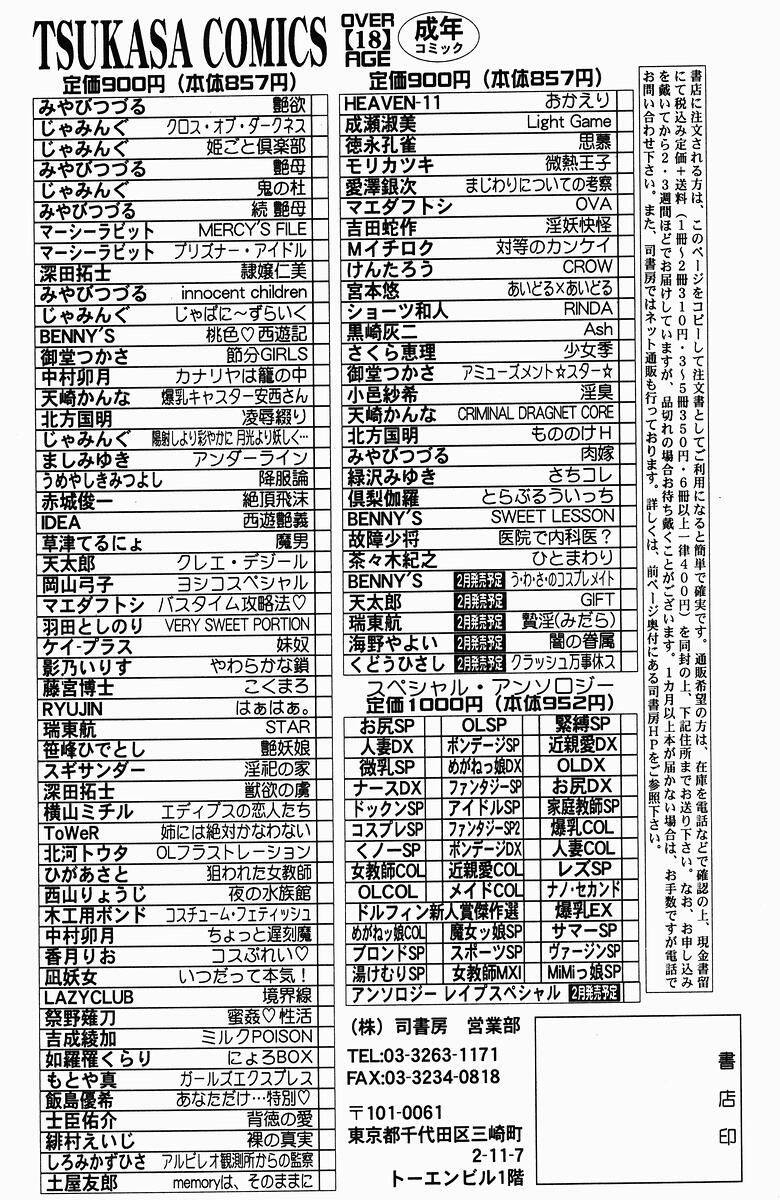 TSUKASA COMICS
OVER
【18】
AGE
成年
コミック
定価900円（本体857円）
みやびつづる 艶欲
じゃみんぐ クロス・オブ・ダークネス
じゃみんぐ 姫ごと倶楽部
みやびつづる 艶母
じゃみんぐ 鬼の杜
みやびつづる 続 艶母
マーシーラビット MERCY'S FILE
マーシーラビット プリズナー・アイドル
深田拓士 隷嬢仁美
みやびつづる innocent children
じゃみんぐ じゃぱに〜ずらいく
BENNY'S 桃色♡西遊記
御堂つかさ 節分GIRLS
中村卯月 カナリヤは籠の中
天崎かんな 爆乳キャスター安西さん
北方国明 凌辱綴り
じゃみんぐ 陽射しより彩やかに 月光より妖しく…
ましみゆき アンダーライン
うめやしきみつよし 降服論
赤城俊一 絶頂飛沫
IDEA 西遊艶義
草津てるにょ 魔男
天太郎 クレエ・デジール
岡山弓子 ヨシコスペシャル
マエダフトシ バスタイム攻略法♡
羽田としのり VERY SWEET PORTION
ケイ-プラス 妹奴
影乃いりす やわらかな鎖
藤宮博士 こくまろ
RYUJIN はぁはぁ。
瑞東航 STAR
笹峰ひでとし 艶妖娘
スギサンダー 淫祀の家
深田拓士 獣欲の虜
横山ミチル エディプスの恋人たち
ToWeR 姉には絶対かなわない
北河トウタ OLフラストレーション
ひがあさと 狙われた女教師
西山りょうじ 夜の水族館
木工用ボンド コスチューム・フェティッシュ
中村卯月 ちょっと遅刻魔
香月りお コスぷれい♡
凪妖女 いつだって本気！
LAZYCLUB 境界線
祭野薙刀 蜜姦♡性活
吉成綾加 ミルクPOISON
如羅幄くらり にょろBOX
もとや真 ガールズエクスプレス
飯島優希 あなただけ…特別♡
士臣佑介 背徳の愛
緋村えいじ 裸の真実
しろみかずひさ アルビレオ観測所からの監察
土屋友郎 memoryは、そのままに
定価900円（本体857円）
HEAVEN-11 おかえり
成瀬淑美 Light Game
徳永孔雀 思慕
モリカツキ 微熱王子
愛澤銀次 まじわりについての考察
マエダフトシ OVA
吉田蛇作 淫妖快怪
Mイチロク 対等のカンケイ
けんたろう CROW
宮本悠 あいどる×あいどる
ショーツ和人 RINDA
黒崎灰二 Ash
さくら恵理 少女季
御堂つかさ アミューズメント☆スター☆
小邑紗希 淫臭
天崎かんな CRIMINAL DRAGNET CORE
北方国明 もののけH
みやびつづる 肉嫁
緑沢みゆき さちコレ
倶梨伽羅 とらぶるういっち
BENNY'S SWEET LESSON
故障少将 医院で内科医？
茶々木紀之 ひとまわり
BENNY'S 2月発売予定 う・わ・さ・のコスプレメイト
天太郎 2月発売予定 GIFT
瑞東航 2月発売予定 贄淫(みだら)
海野やよい 2月発売予定 闇の眷属
くどうひさし 2月発売予定 クラッシュ万事休ス
スペシャル・アンソロジー
定価1000円（本体952円）
お尻SP OLSP 緊縛SP
人妻DX ボンデージSP 近親愛DX
微乳SP めがねっ娘DX OLDX
ナースDX ファンタジーSP お尻DX
ドックンSP アイドルSP 家庭教師SP
コスプレSP ファンタジーSP2 爆乳COL
くノ一SP ボンデージDX 人妻COL
女教師COL 近親愛COL レズSP
OLCOL メイドCOL ナノ・セカンド
ドルフィン新人賞傑作選 爆乳EX
めがねッ娘COL 魔女ッ娘SP サマーSP
ブロンドSP スポーツSP ヴァージンSP
湯けむりSP 女教師MXI MiMiっ娘SP
アンソロジー レイプスペシャル 2月発売予定
（株）司書房 営業部
TEL:03-3263-1171
FAX:03-3234-0818
〒101-0061
東京都千代田区三崎町
2-11-7
トーエンビル1階
書店印
書店に注文される方は、このページをコピーして注文書としてご利用になると簡単で確実です。通販希望の方は、在庫を電話などで確認の上、現金書留
にて税込み定価＋送料（1冊〜2冊310円・3〜5冊350円・6冊以上一律400円）を同封の上、下記住所までお送り下さい。なお、お申し込み
を戴いてから2・3週間ほどでお届けしていますが、品切れの場合お待ち戴くことがございます。1カ月以上本が届かない場合は、お手数ですが電話で
お問い合わせ下さい。また、司書房ではネット通販も行っております。詳しくは、前ページ奥付にある司書房HPをご参照下さい。